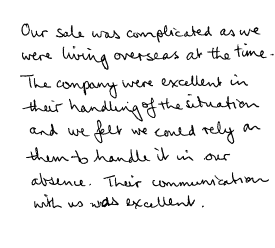 Our sale was complicated as we
were living overseas at the time.
The company were excellent in
their handling of the situation
and we felt we could rely on
them to handle it in our
absence. Their communication
with us was excellent.